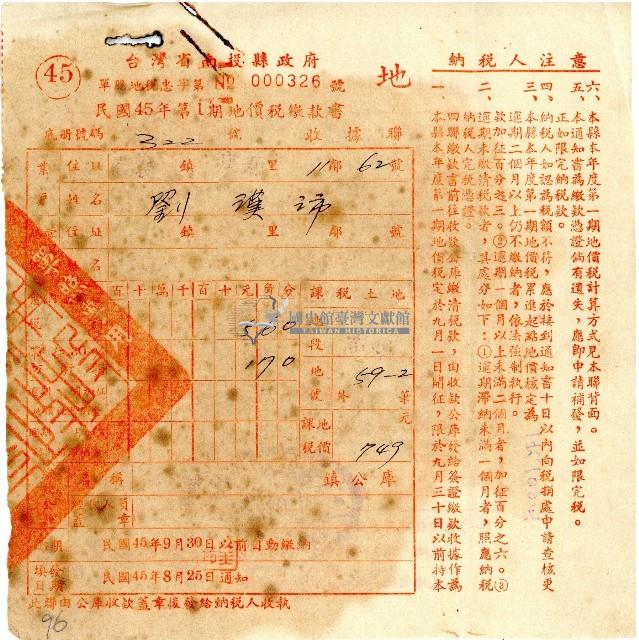 45
台灣省南投縣政府
單縣地稅忠字第 No 000326 號
地
民國45年第1期地價稅繳款書
底册號碼 322 號 收據聯
業 住址 鎮 里 11鄰 62號
姓名 劉漢沛
住址 鎮 里 鄰 號
姓名
百十萬千百十元角分 課稅土地
500 地段
170 地號 59-2
筆
課稅地價 749 元
鎮公庫
民國45年9月30日以前自動繳納
填發日期 民國45年8月25日通知
此聯由公庫收款蓋章後發給納稅人收執
96
國史館臺灣文獻館
TAIWAN HISTORICA
納稅人注意
一、本縣本年度第一期地價稅定於九月一日開征，限於九月三十日以前持本
四聯繳款書前往收款公庫繳清稅款，由收款公庫發給簽證繳款收據作為
納稅人完稅憑證。
二、逾期未繳清稅款者，其處分如下：①逾期滯納未滿一個月者，照應納稅
款加征百分之三。②逾期一個月以上未滿二個月者，加征百分之六。③
逾期二個月以上仍不繳納者，依法強制執行。
三、本縣本年度第一期地價稅累進起點地價核定為
四、納稅人如認為稅額不符，應於接到通知書十日以內向稅捐處申請查核更
正如限完納稅款。
五、本通知書為繳款憑證倘有遺失，應即申請補發，並如限完稅。
六、本縣本年度第一期地價稅計算方式見本聯背面。